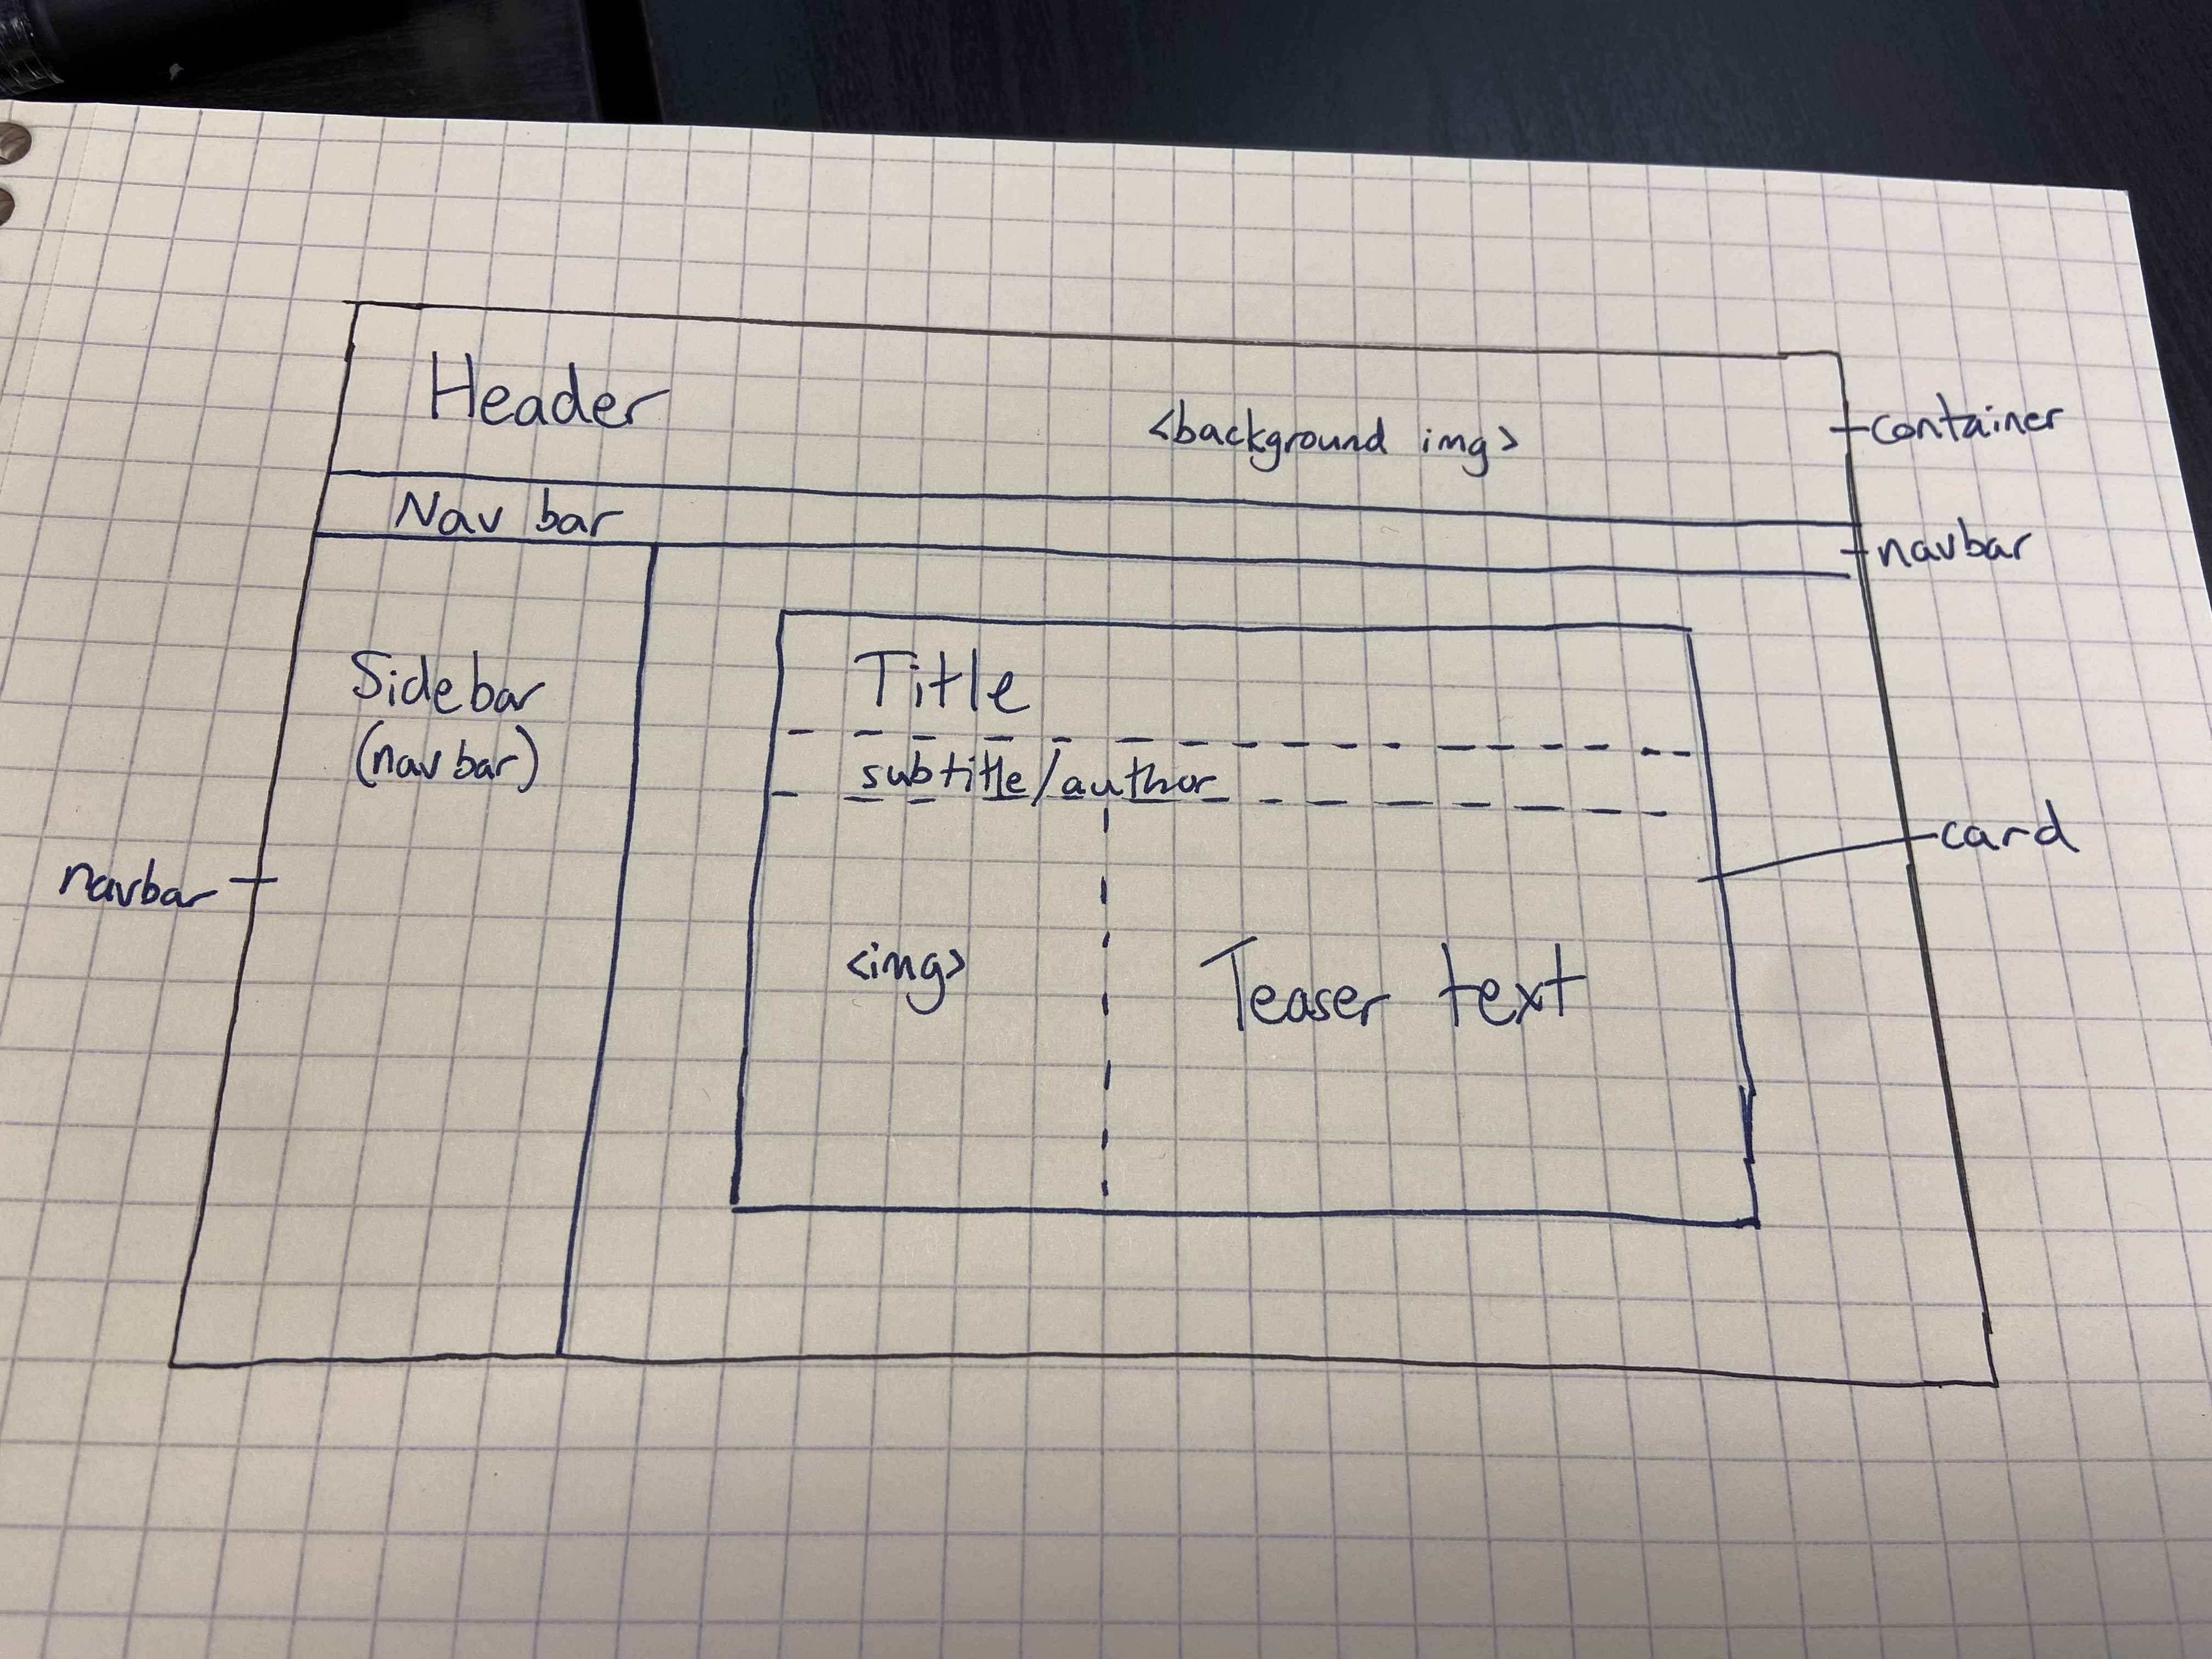 Header
<background img>
container
Nav bar
navbar
Sidebar
(navbar)
navbar
Title
subtitle/author
card
<img>
Teaser text